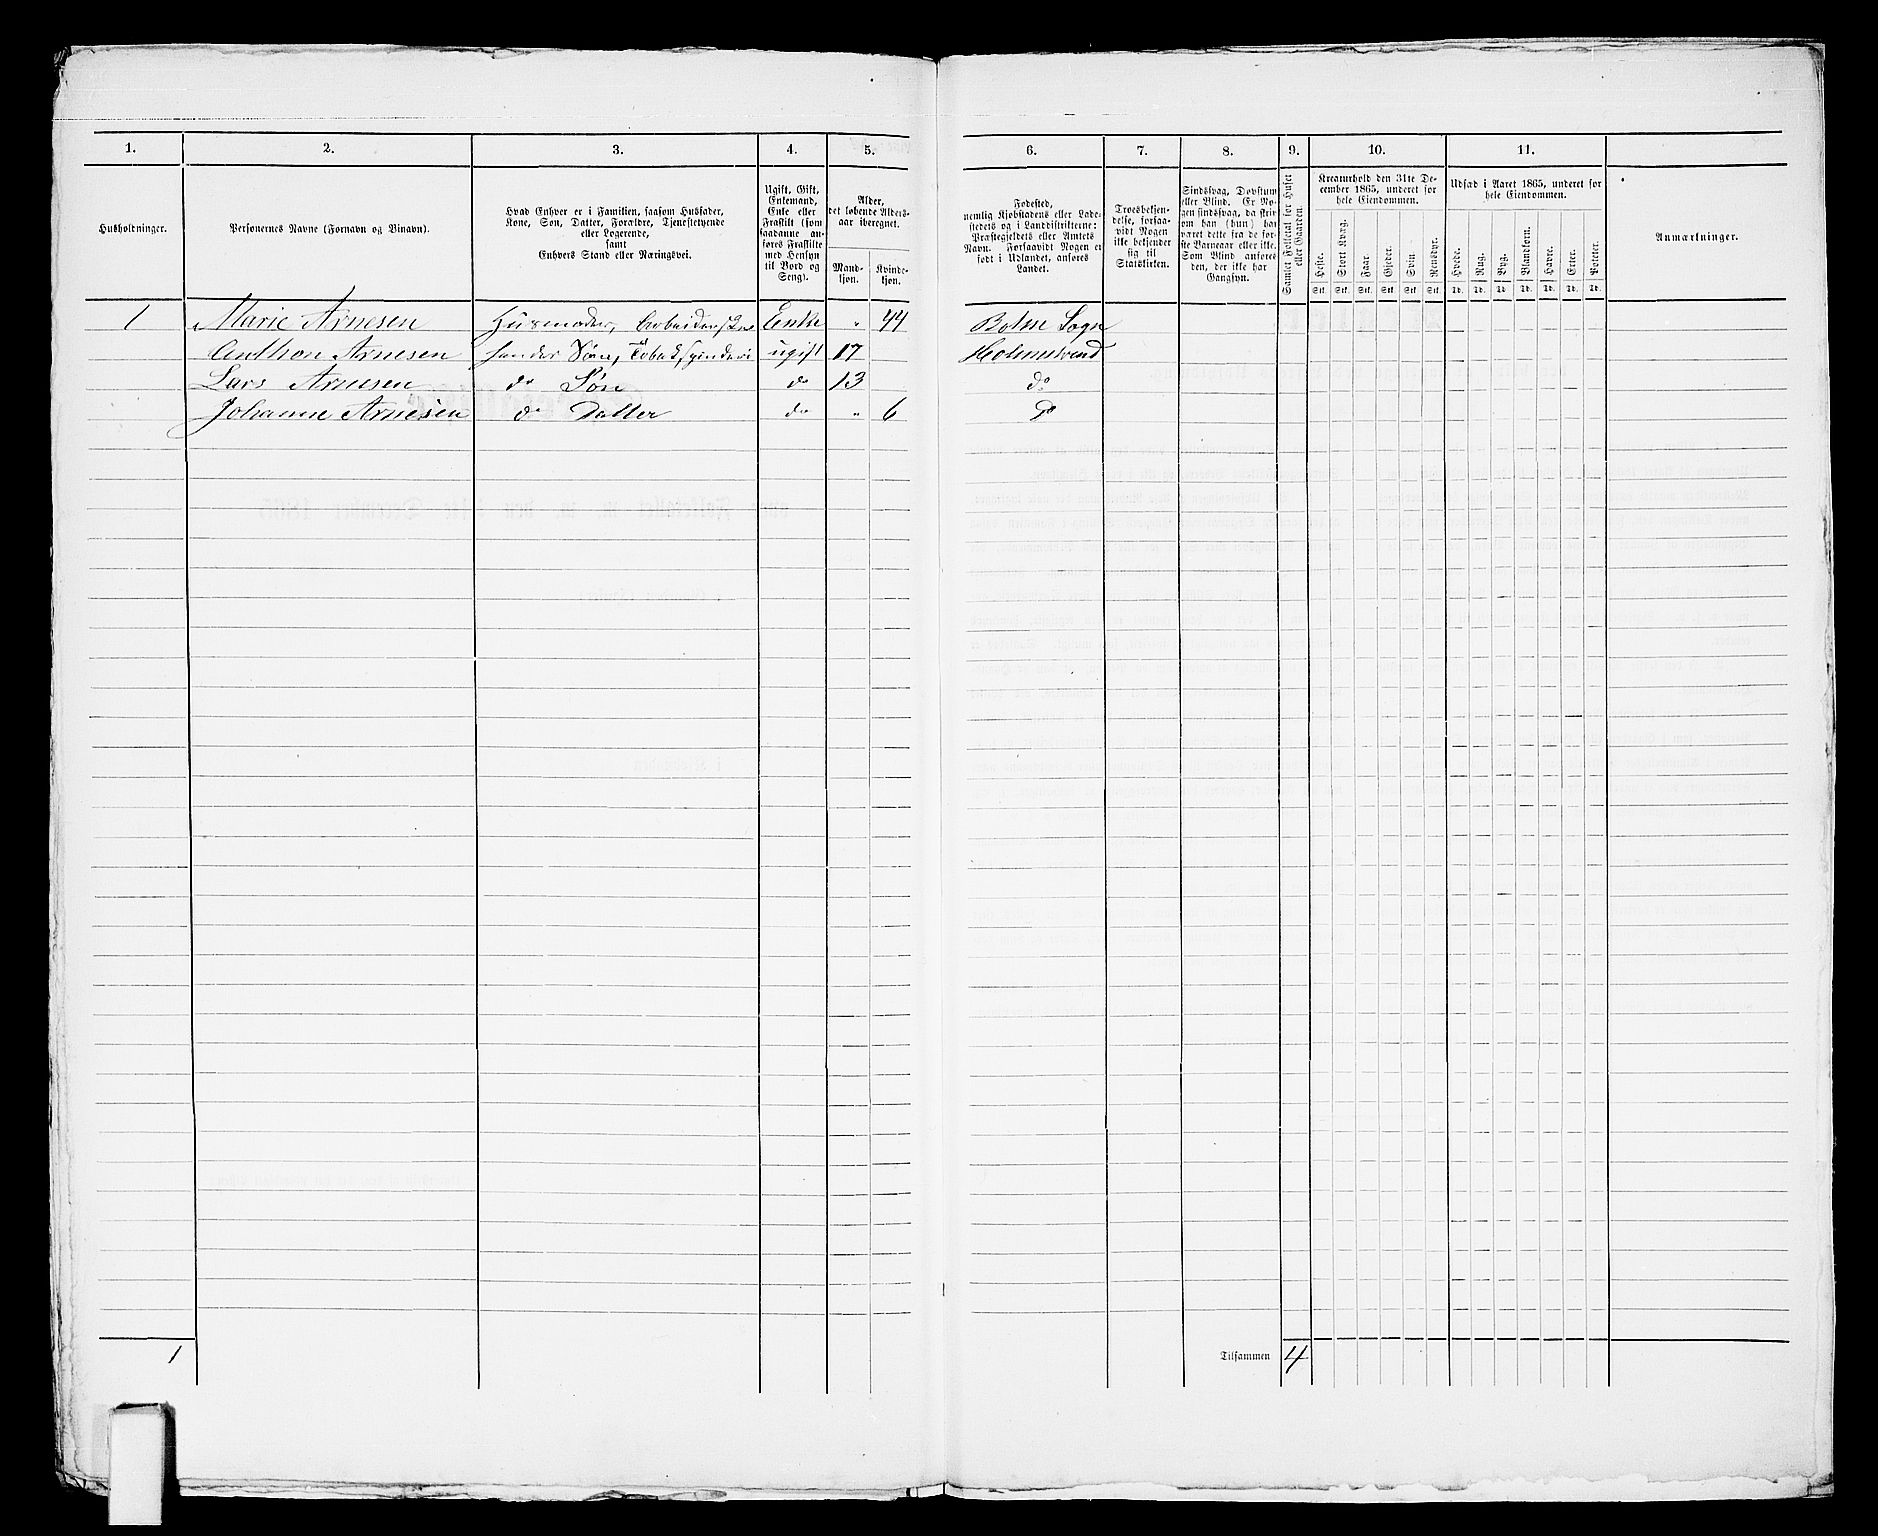 1. 2. 3. 4. 5. 6. 7. 8. 9. 10. 11.
Husholdninger.
Personernes Navne (Fornavn og Binavn).
Hvad Enhver er i Familien, saasom Husfader,
Kone, Søn, Datter, Forældre, Tjenestetyende
eller Logerende,
samt
Enhvers Stand eller Næringsvei.
Ugift, Gift,
Enkemand,
Enke eller
Fraskilt (som
saadanne an-
føres Fraskilte
med Hensyn
til Bord og
Seng).
Alder,
det løbende Alders-
aar iberegnet.
Mand-
kjøn.
Kvinde-
kjøn.
Fødested,
nemlig Kjøbstadens eller Lade-
stedets og i Landdistrikterne:
Præstegjeldets eller Amtets
Navn. Forsaavidt Nogen er
født i Udlandet, anføres
Landet.
Troesbekjen-
delse, forsaa-
vidt Nogen
ikke bekjender
sig til
Statskirken.
Sindssvag, Døvstum
eller Blind. Er No-
gen sindssvag, da skriv
om han (hun) har
været dette fra de før-
ste Barneaar eller ikke.
Som Blind anføres
den, der ikke har
Gangsyn.
Samlet Folketal for Huset
eller Gaarden.
Kreaturhold den 31te De-
cember 1865, underet for
hele Eiendommen.
Heste.
Stort Kvæg.
Faar.
Gjeder.
Sviin.
Rensdyr.
Stk. Stk. Stk. Stk. Stk. Stk.
Udsæd i Aaret 1865, underet for
hele Eiendommen.
Hvede.
Rug.
Byg.
Blandkorn.
Havre.
Erter.
Poteter.
Td. Td. Td. Td. Td. Td. Td.
Anmærkninger.
1 Marie Arnesen Husmoder, Enke " 44 Botne Sogn
Anthon Arnesen Søn, Tobakspinderi ugift 17 Holmestrand
Lars Arnesen do Søn do 13 do
Johanne Arnesen do Datter do " 6 do
1 Tilsammen 4